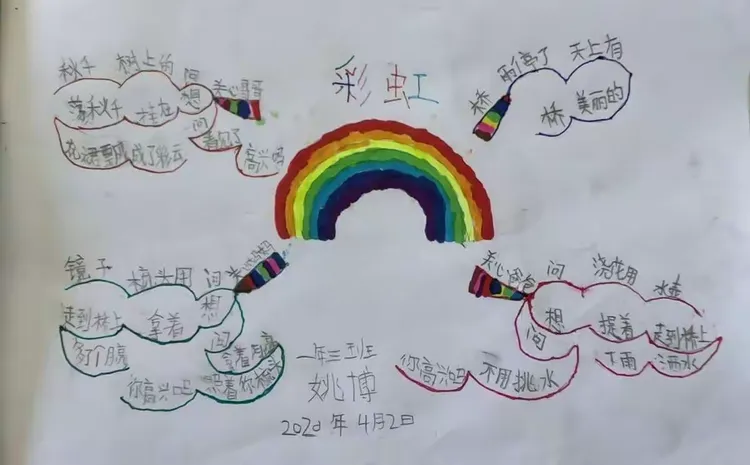 彩虹
秋千 树上的 问 关心哥哥
荡秋千 挂在 想
问 看见了
花裙要飘成了彩云
高兴吗
雨停了 天上有
桥 美丽的
桥
镜子 梳头用 问 关心妈妈
走到桥上 拿着 想
多了个月亮 问 拿着月亮
照着你梳头
你高兴吗
关心爸爸 问 浇花用 水壶
想 提着 走到桥上
问 下雨 洒水
不用挑水
你高兴吗
一年三班
姚博
2020年4月2日